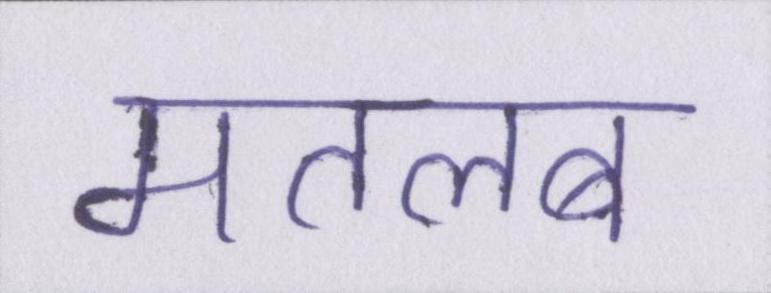 मतलब